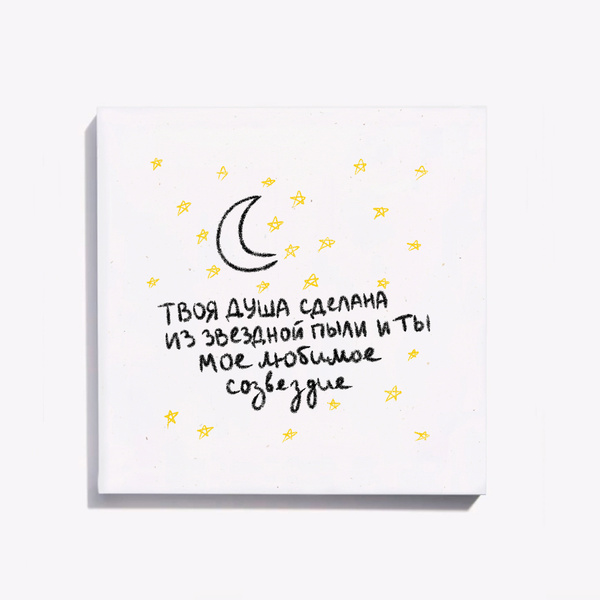 ТВОЯ ДУША СДЕЛАНА
ИЗ ЗВЕЗДНОЙ ПЫЛИ И ТЫ
МОЕ любимое
созвездие